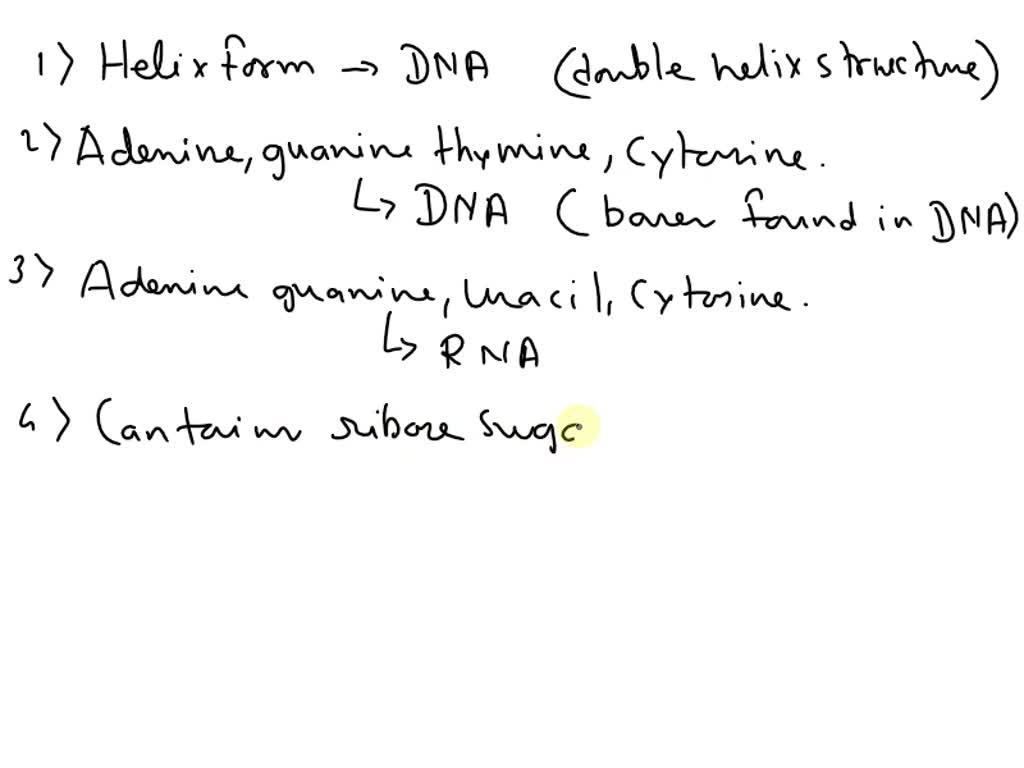 1) Helix form → DNA (double helix structure)
2) Adenine, guanine thymine, Cytosine.
↳ DNA (bases found in DNA)
3) Adenine guanine, Uracil, Cytosine.
↳ RNA
4) Contains ribose suga